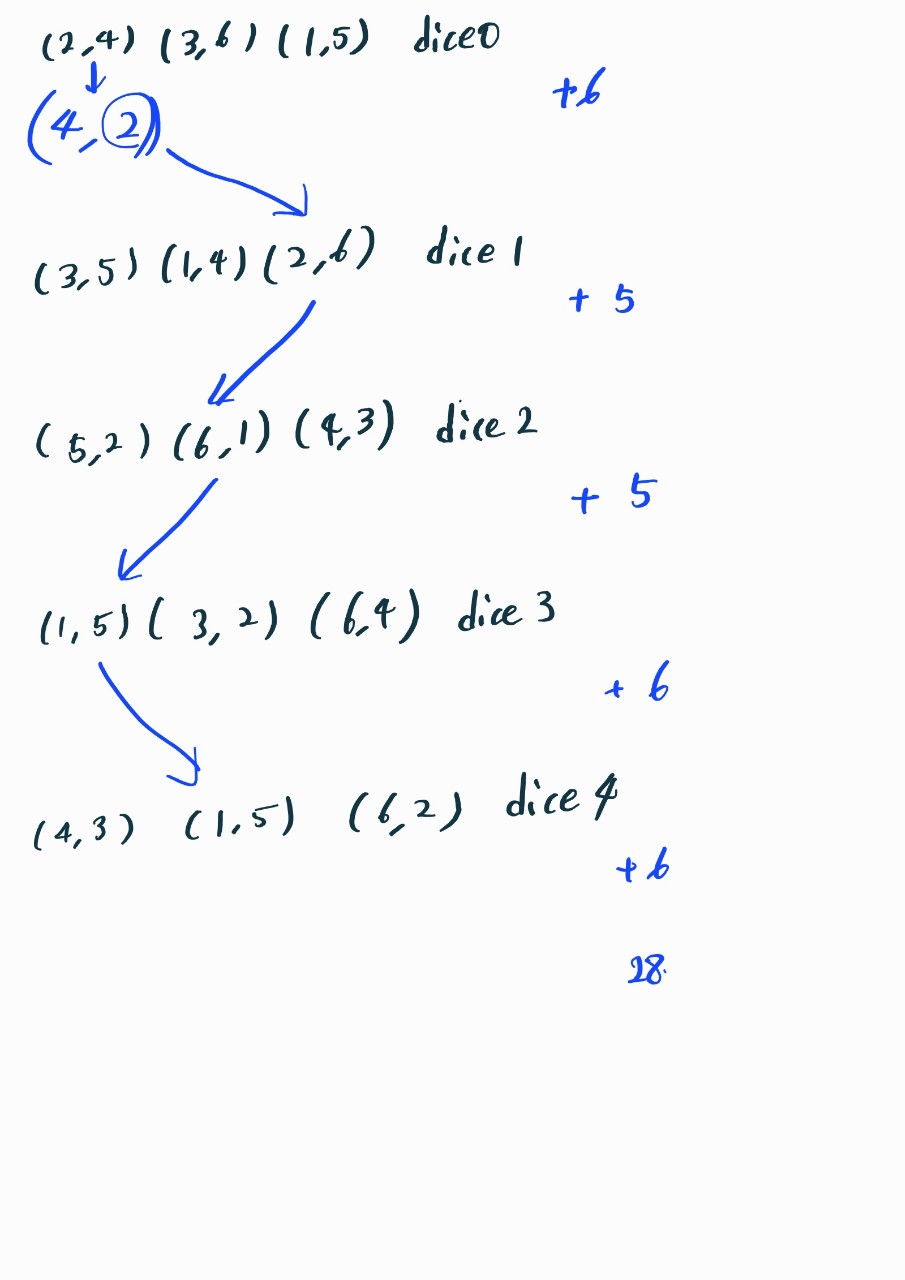 (2,4) (3,6) (1,5) dice0
+6
(4,2)
(3,5) (1,4) (2,6) dice 1
+ 5
(5,2) (6,1) (4,3) dice 2
+ 5
(1,5) (3,2) (6,4) dice 3
+ 6
(4,3) (1,5) (6,2) dice 4
+6
28